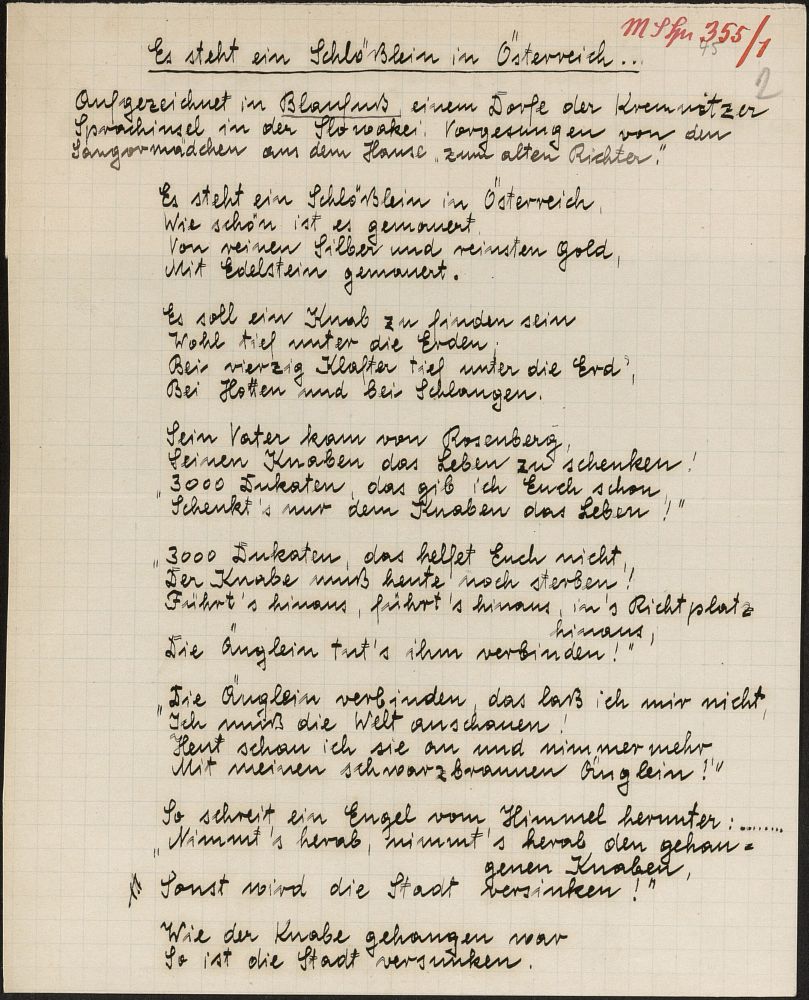 355/1
2
Es steht ein Schlößlein in Österreich...
Aufgezeichnet in Blaufuß, einem Dorfe der Kremnitzer
Sprachinsel in der Slowakei. Vorgesungen von den
Sangormädchen aus dem Hause „zum alten Richter."
Es steht ein Schlößlein in Österreich,
Wie schön ist es gemauert,
Von reinen Silber und reinsten Gold,
Mit Edelstein gemauert.
Es soll ein Knab zu finden sein
Wohl tief unter die Erden;
Bei vierzig Klafter tief unter die Erd',
Bei Hotten und bei Schlangen.
Sein Vater kam von Rosenberg,
Seinen Knaben das Leben zu schenken!
„3000 Dukaten, das gib ich Euch schon,
Schenkt's nur dem Knaben das Leben!"
„3000 Dukaten, das helfet Euch nicht,
Der Knabe muß heute noch sterben!
Führt's hinaus, führt's hinaus, in's Richtplatz
hinaus,
Die Äuglein tut's ihm verbinden!"
„Die Äuglein verbinden, das laß ich mir nicht,
Ich muß die Welt anschauen!
Heut schau ich sie an und nimmermehr
Mit meinen schwarzbraunen Äuglein!"
So schreit ein Engel vom Himmel herunter:........
„Nimmt's herab, nimmt's herab den gehan=
genen Knaben,
Sonst wird die Stadt versinken!"
Wie der Knabe gehangen war
So ist die Stadt versunken.